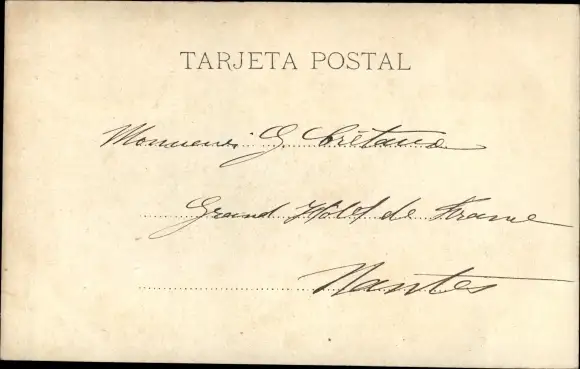 TARJETA POSTAL
Monsieur G. Crétaud
Grand Hôtel de France
Nantes